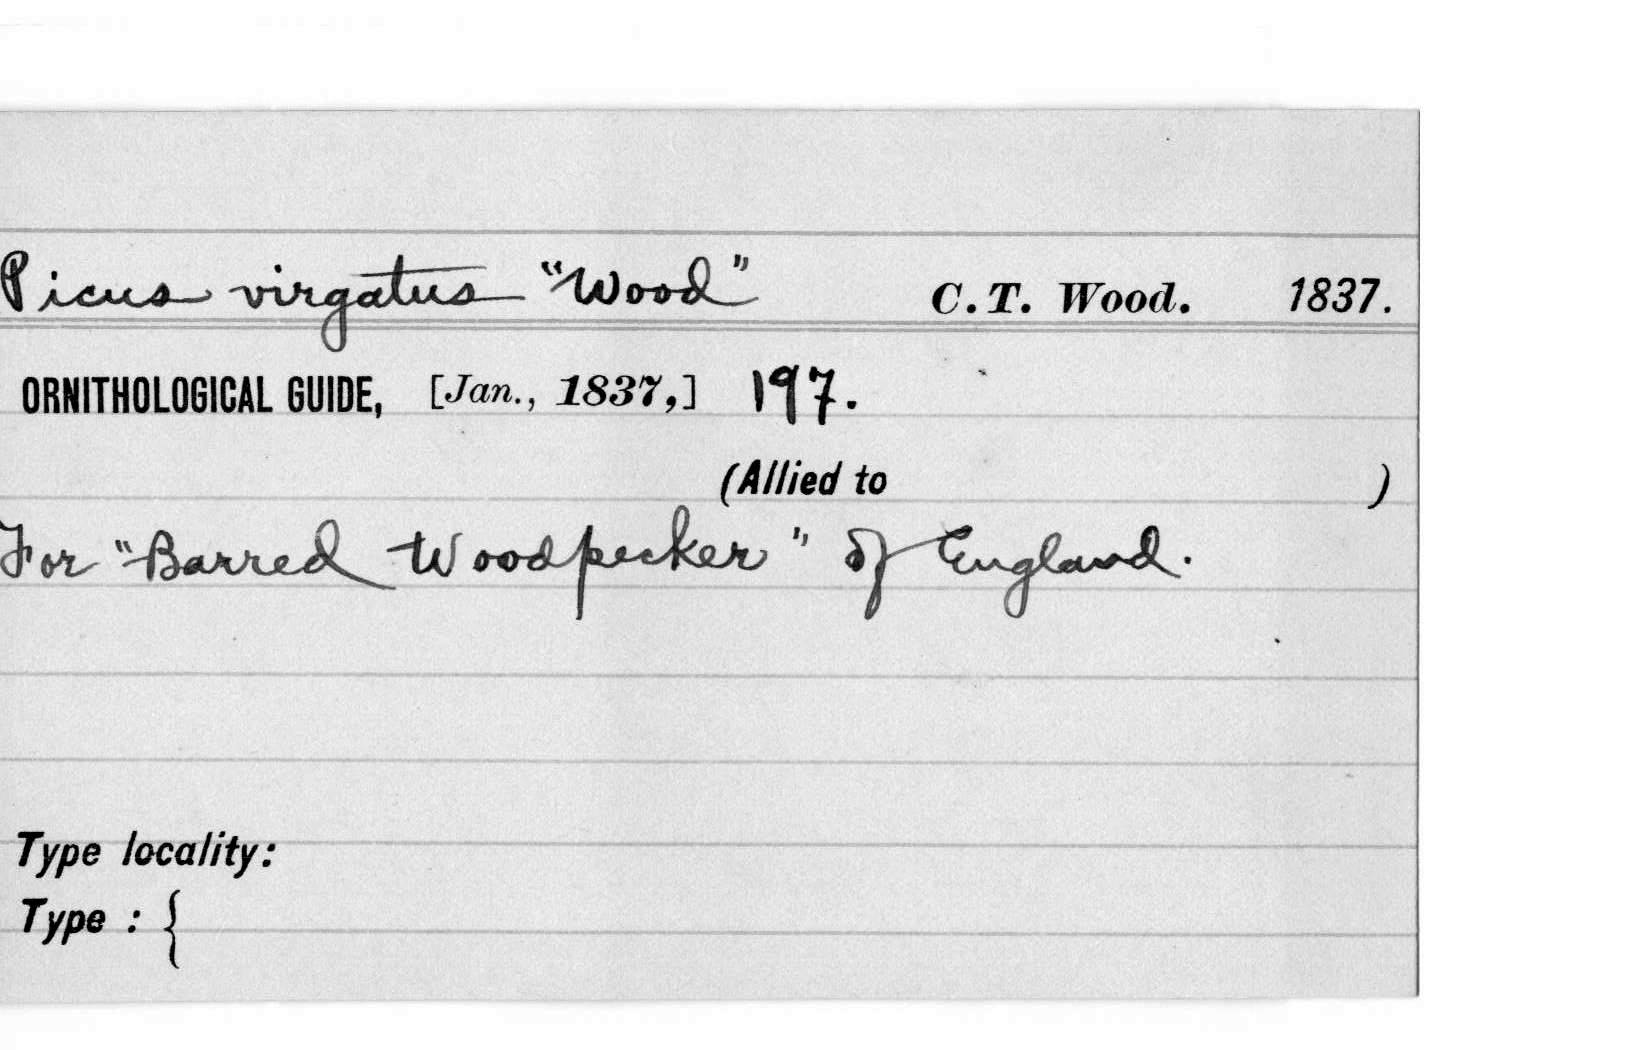 Picus virgatus "Wood" C. T. Wood. 1837.
ORNITHOLOGICAL GUIDE, [Jan., 1837,] 197.
(Allied to )
For "Barred Woodpecker" of England.
Type locality:
Type : {